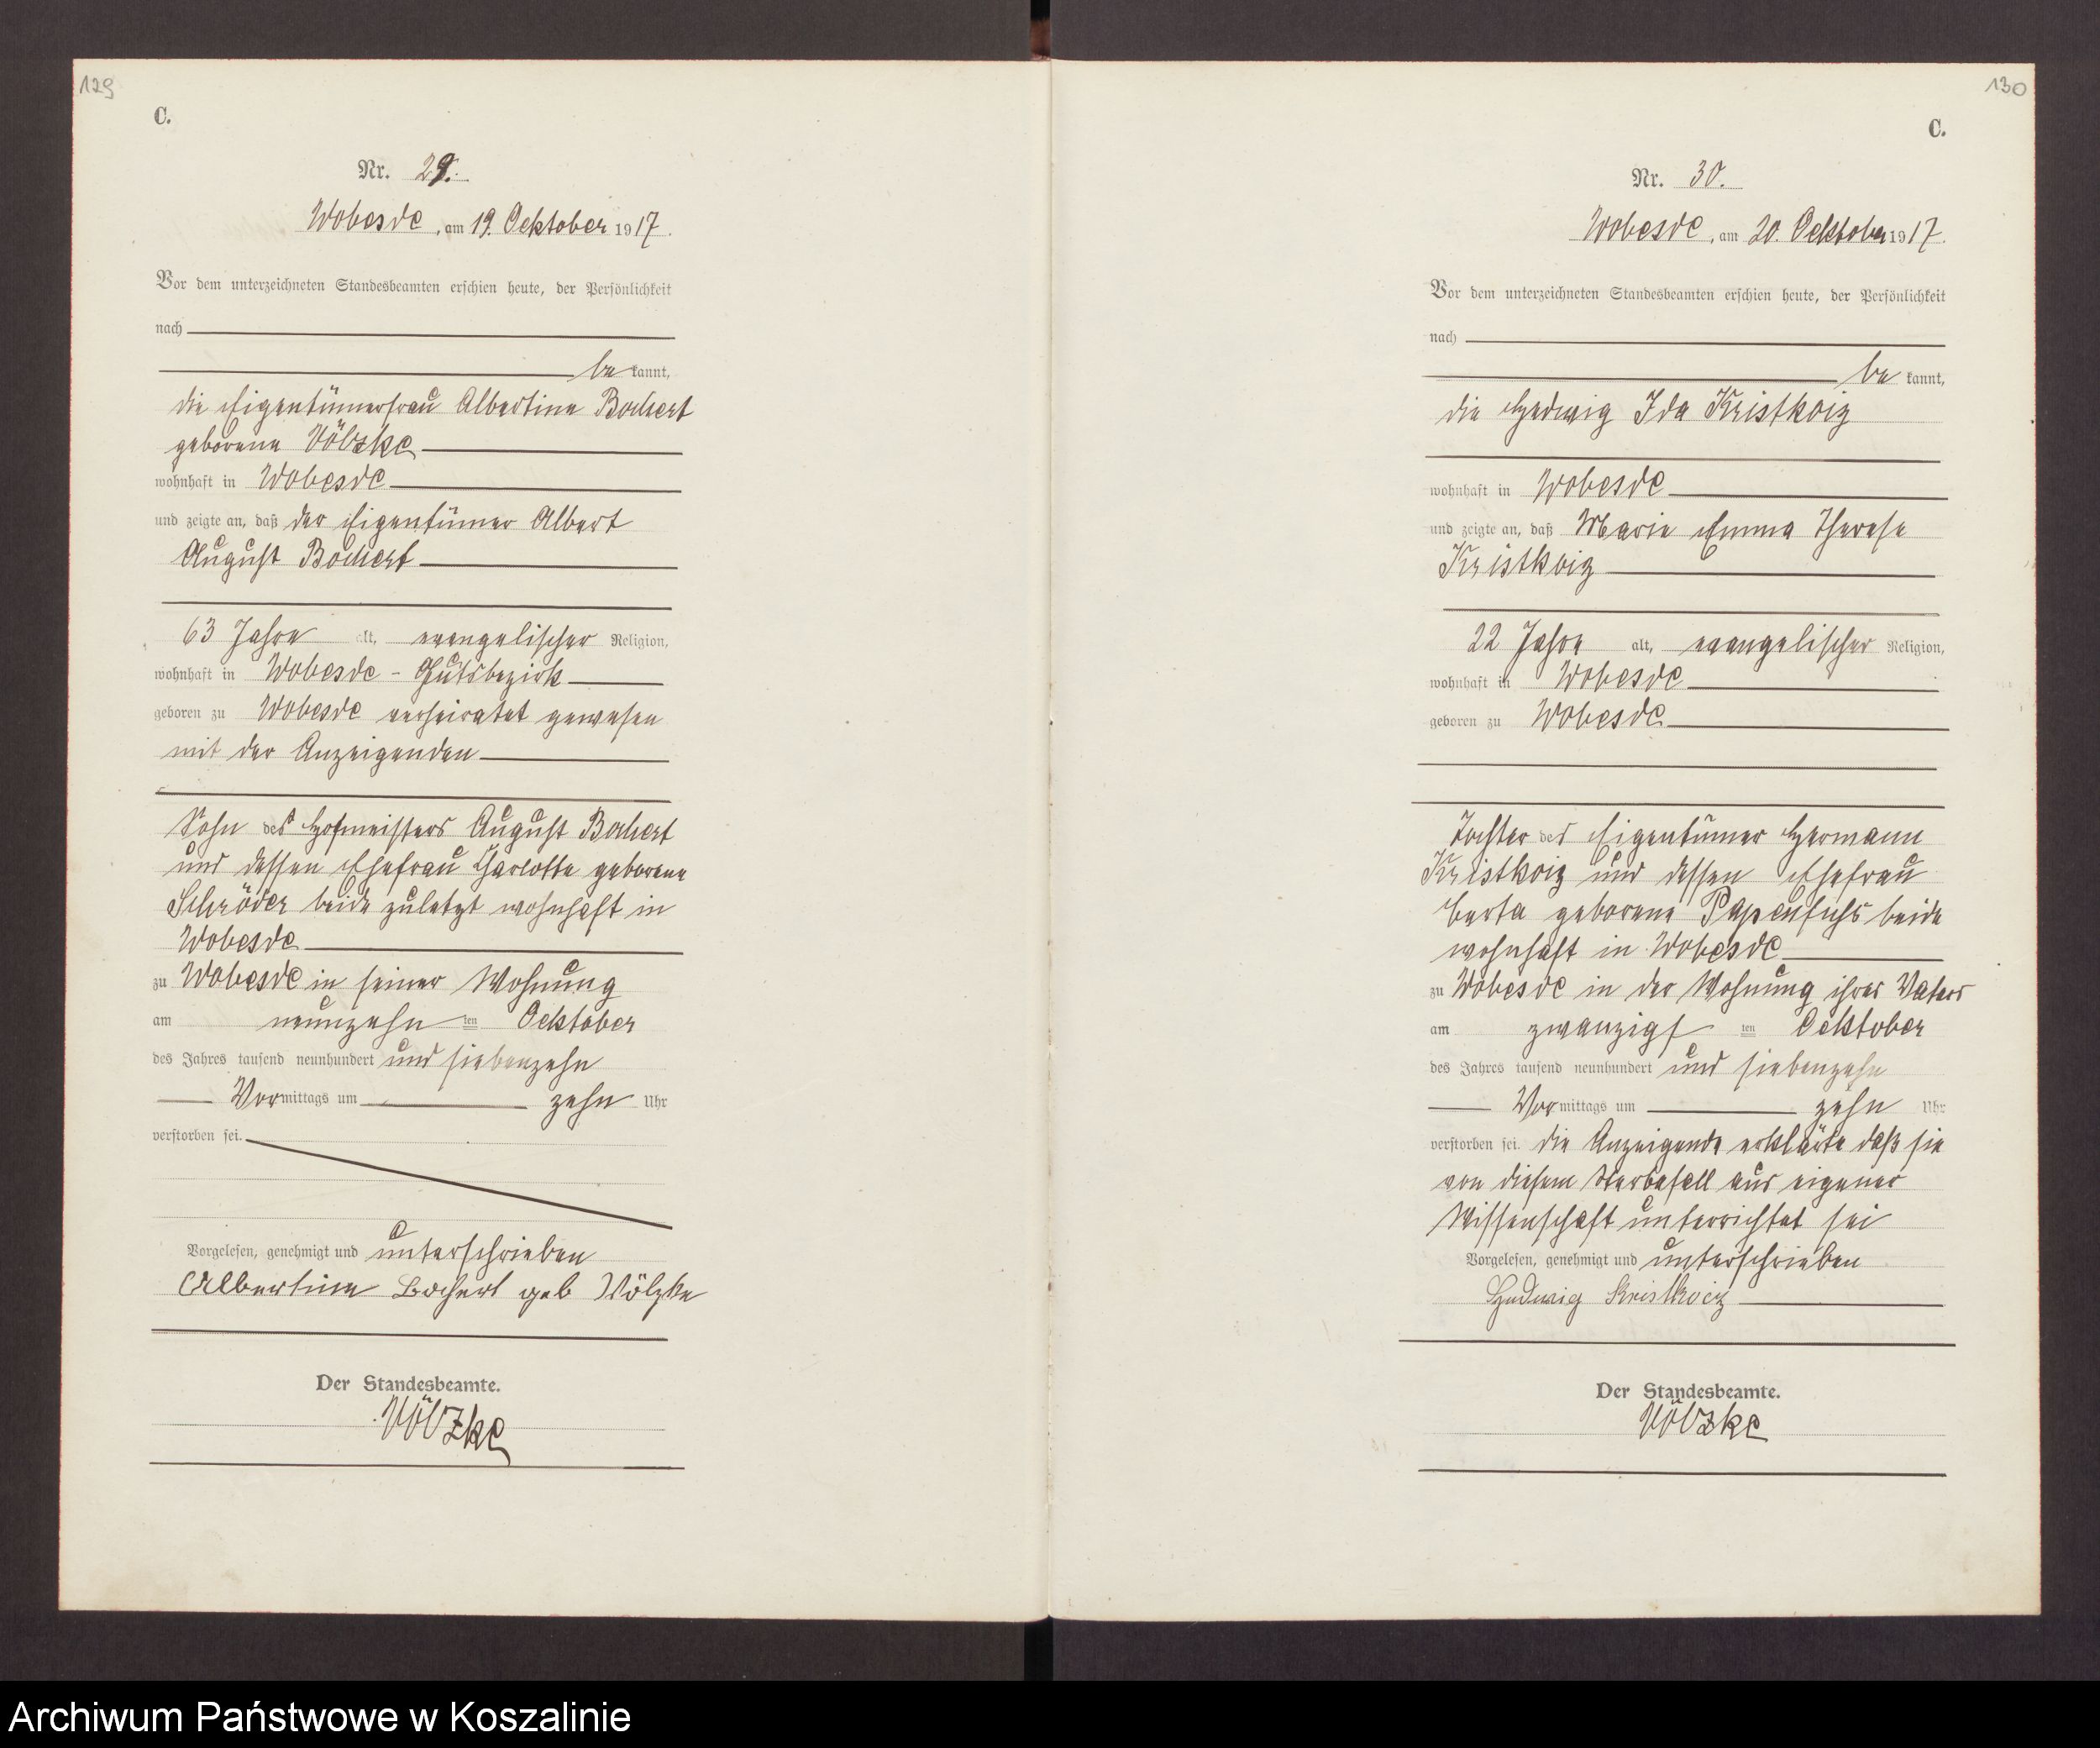 129
C.
Nr. 29.
Wobesde, am 19. Ocktober 1917.
Vor dem unterzeichneten Standesbeamten erschien heute, der Persönlichkeit
nach
be kannt,
die Eigentümerfrau Albertine Bochert
geborene Völzke
wohnhaft in Wobesde
und zeigte an, daß der Eigentümer Albert
August Bochert
63 Jahre alt, evangelischer Religion,
wohnhaft in Wobesde - Gutsbezirk
geboren zu Wobesde verheiratet gewesen
mit der Anzeigenden
Sohn des Hofmeisters August Bochert
und dessen Ehefrau Charlotte geborene
Schröder beide zuletzt wohnhaft in
Wobesde
zu Wobesde in seiner Wohnung
am neunzehn ten Ocktober
des Jahres tausend neunhundert und siebenzehn
Vormittags um zehn Uhr
verstorben sei.
Vorgelesen, genehmigt und unterschrieben
Albertine Bochert geb Völzke
Der Standesbeamte.
Völzke
130
C.
Nr. 30.
Wobesde, am 20. Ocktober 1917.
Vor dem unterzeichneten Standesbeamten erschien heute, der Persönlichkeit
nach
be kannt,
die Hedwig Ida Kristkoiz
wohnhaft in Wobesde
und zeigte an, daß Marie Emma Therese
Kristkoiz
22 Jahre alt, evangelischer Religion,
wohnhaft in Wobesde
geboren zu Wobesde
Tochter des Eigentümer Hermann
Kristkoiz und dessen Ehefrau
Berta geborene Papenfuhs beide
wohnhaft in Wobesde
zu Wobesde in der Wohnung ihres Vaters
am zwanzigs ten Ocktober
des Jahres tausend neunhundert und siebenzehn
Vormittags um zehn Uhr
verstorben sei. die Anzeigende erklärte daß sie
von diesem Sterbefall aus eigener
Wissenschaft unterrichtet sei
Vorgelesen, genehmigt und unterschrieben
Hedwig Kristkoiz
Der Standesbeamte.
Völzke
Archiwum Państwowe w Koszalinie